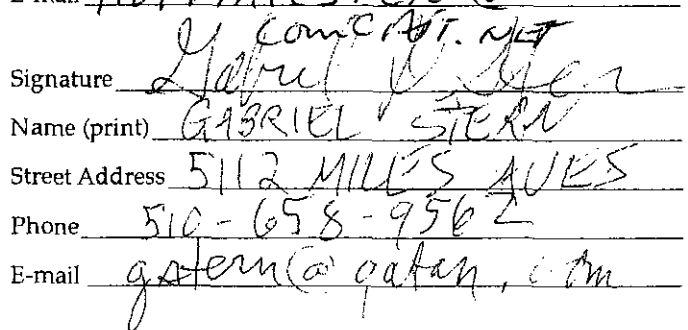 E-mail
COMCAST.NET
Signature Gabriel Stern
Name (print) GABRIEL STERN
Street Address 5112 MILES AVES
Phone 510-658-9562
E-mail gstern@gatan.com